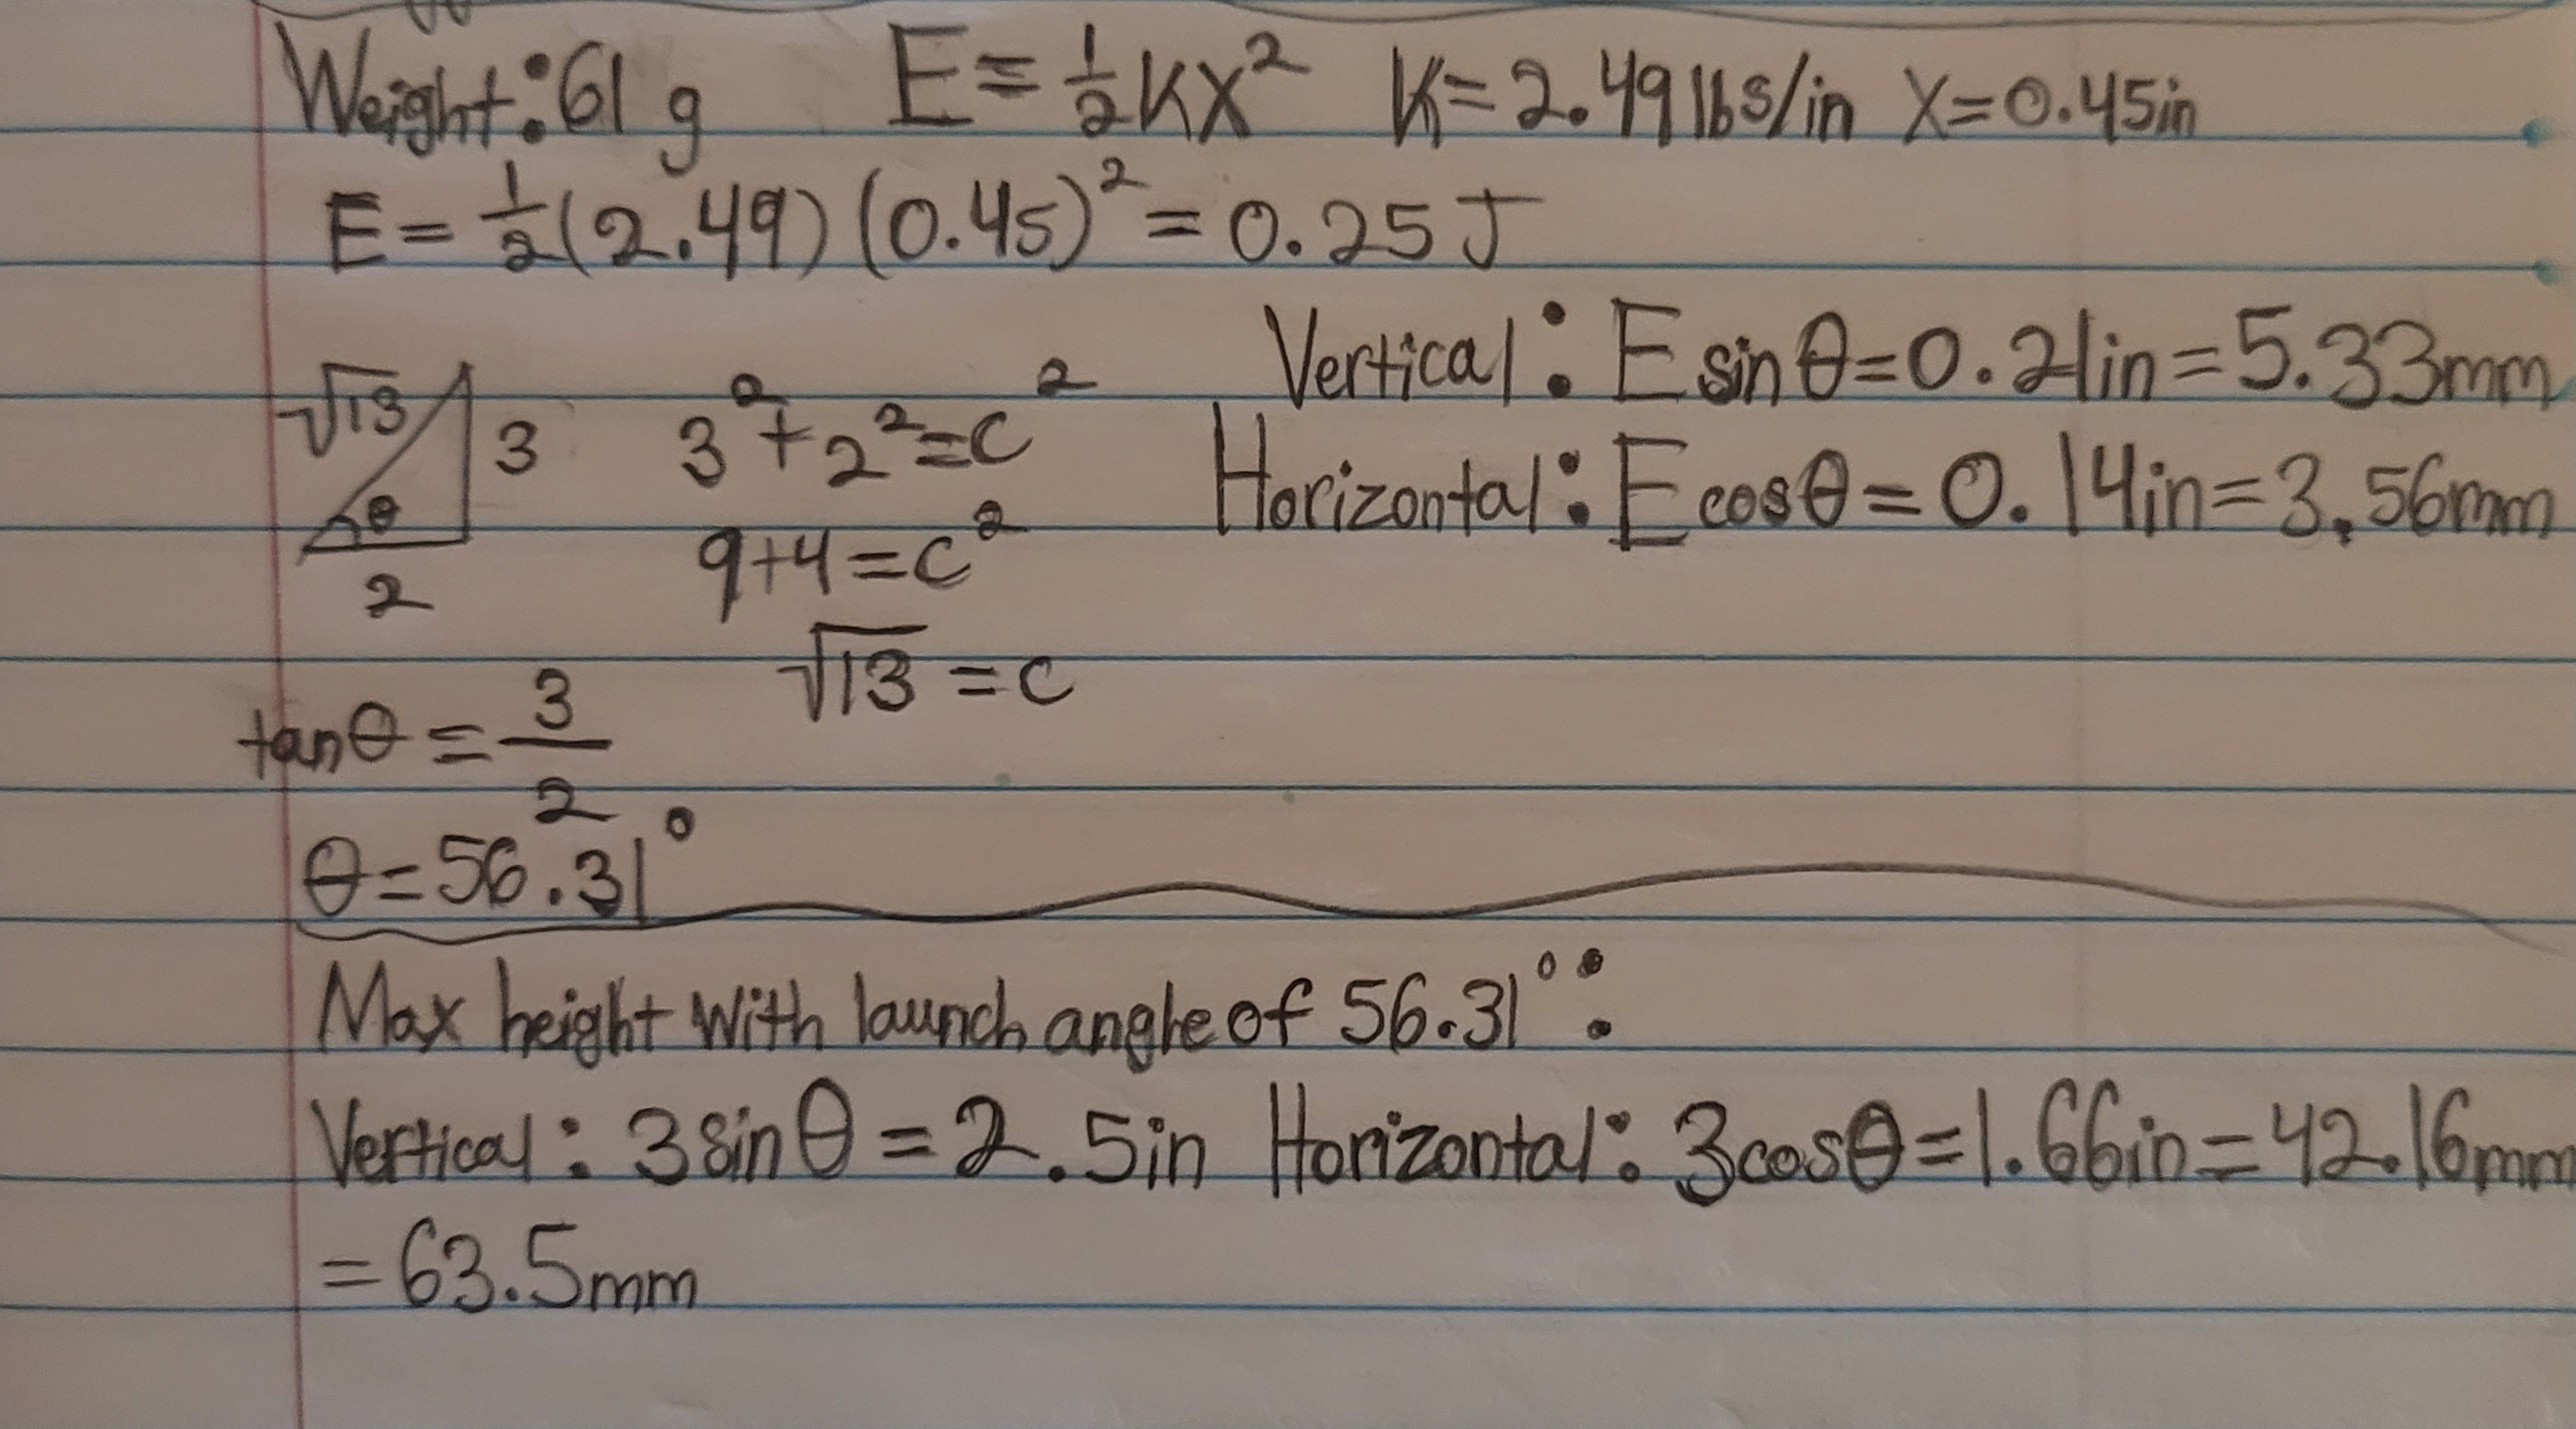 Weight: 61 g E = 1/2 Kx² K = 2.49 lbs/in X = 0.45in
E = 1/2 (2.49) (0.45)² = 0.25 J
Vertical: E sin θ = 0.21in = 5.33mm
√13 3 3² + 2² = c²
Horizontal: E cos θ = 0.14in = 3.56mm
θ
2 9 + 4 = c²
√13 = c
tan θ = 3/2
θ = 56.31°
Max height with launch angle of 56.31°:
Vertical: 3 sin θ = 2.5in Horizontal: 3 cos θ = 1.66in = 42.16mm
= 63.5mm